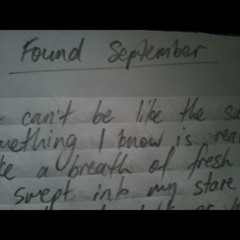 Found September
can't be like the
mething I know is real
a breath of fresh
swept into my stare